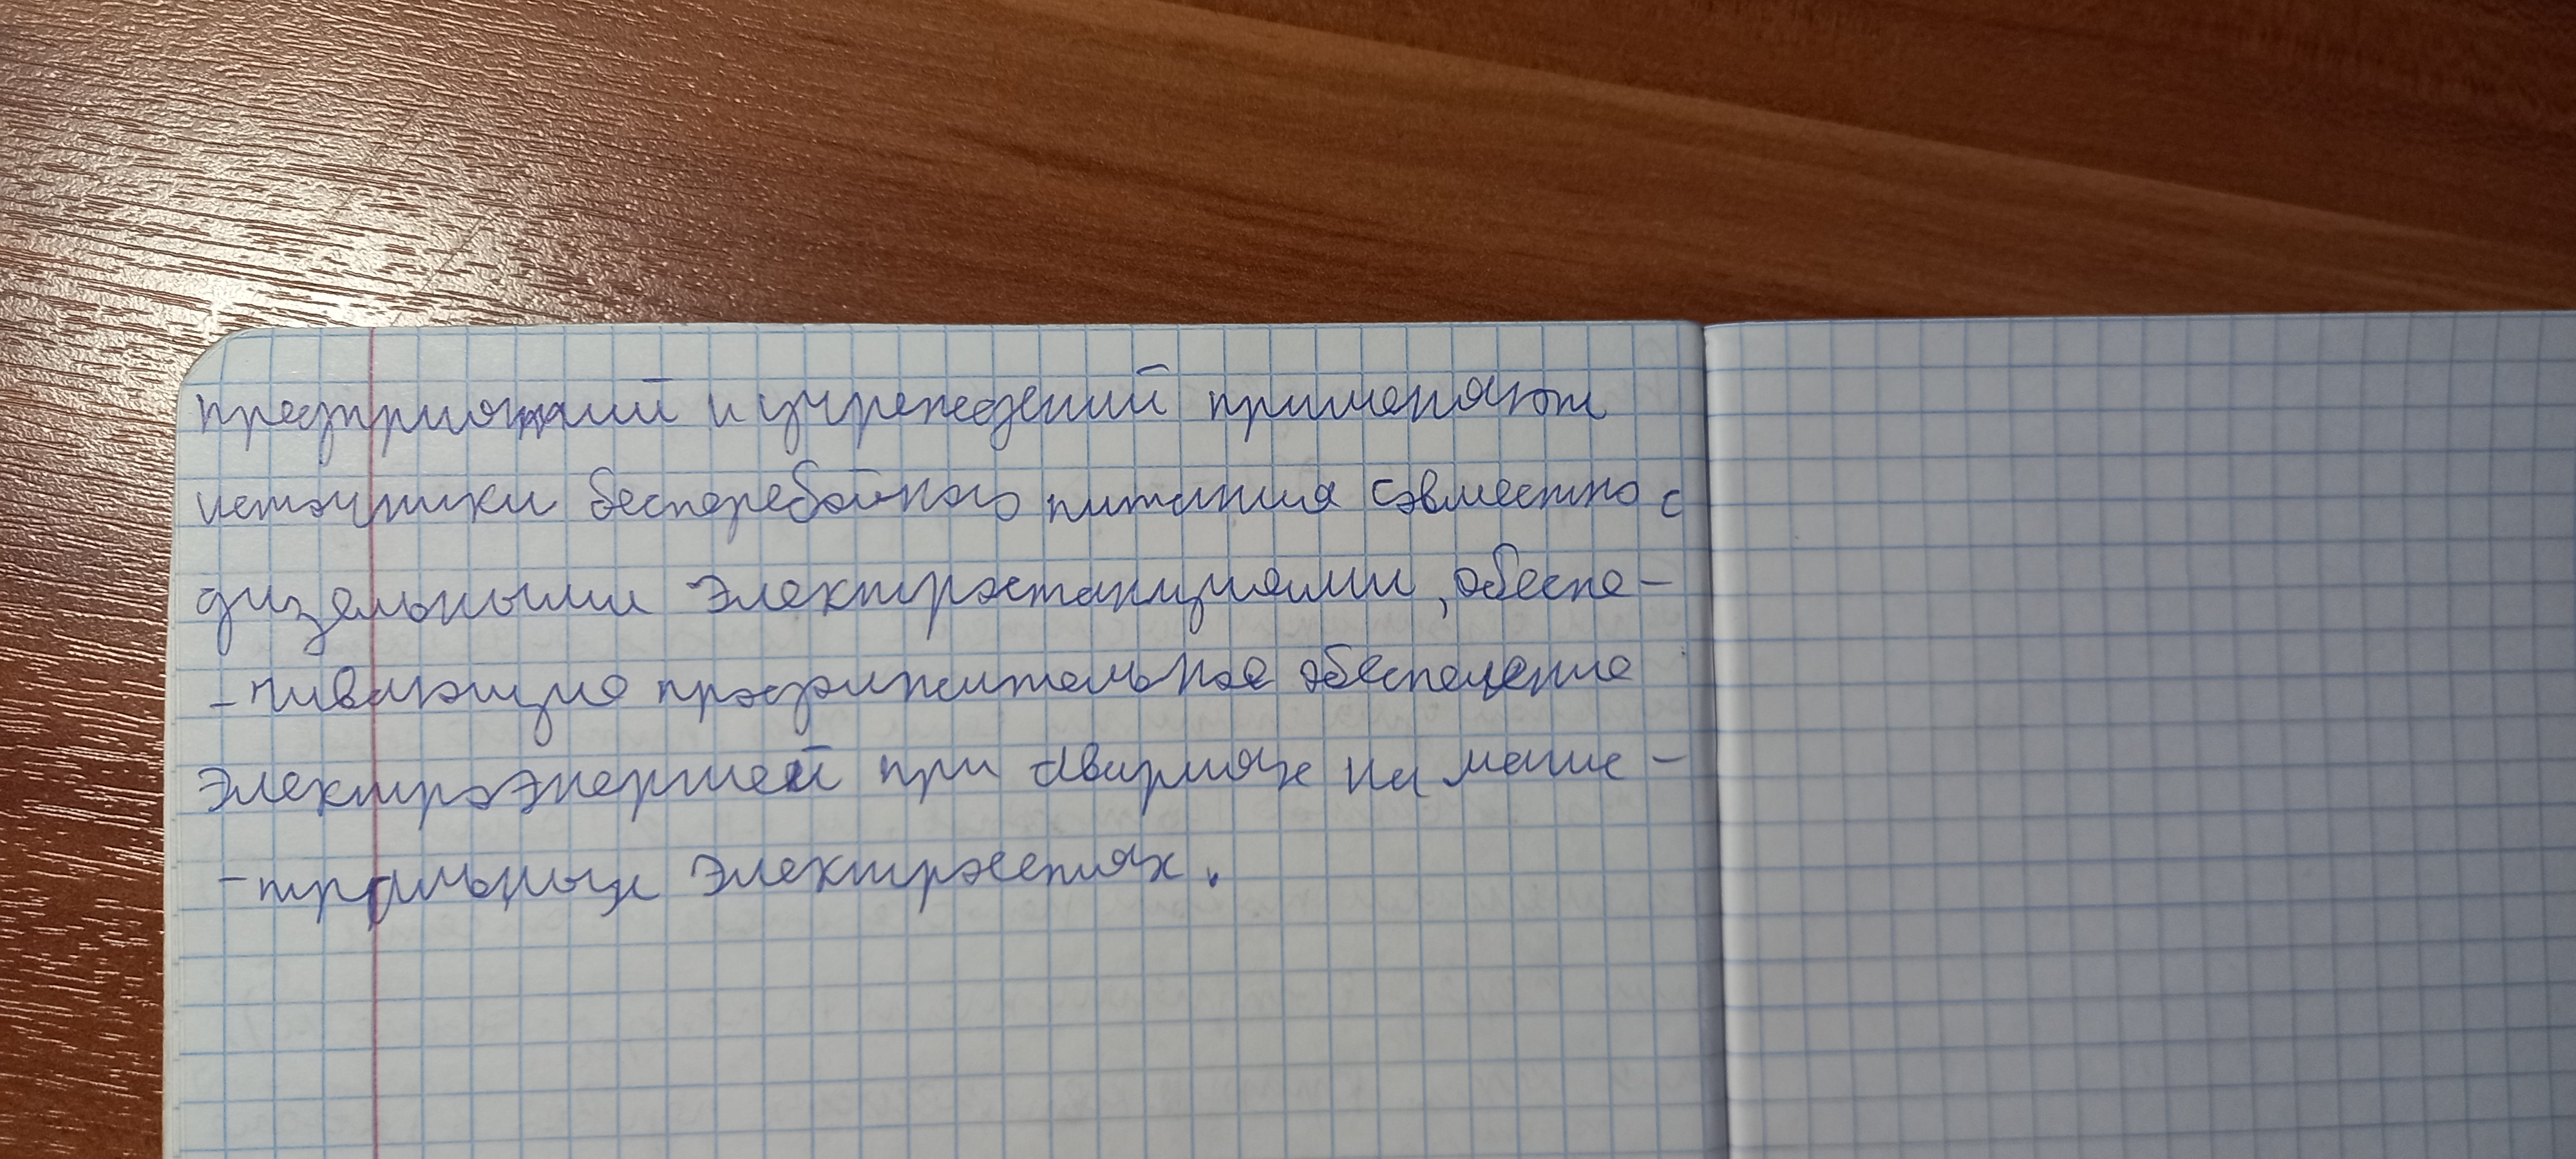 предприятий и учреждений применяют
источники бесперебойного питания совместно с
дизельными электростанциями, обеспе-
-чивающие продолжительное обеспечение
электроэнергией при авариях на маги-
-тральных электросетях.